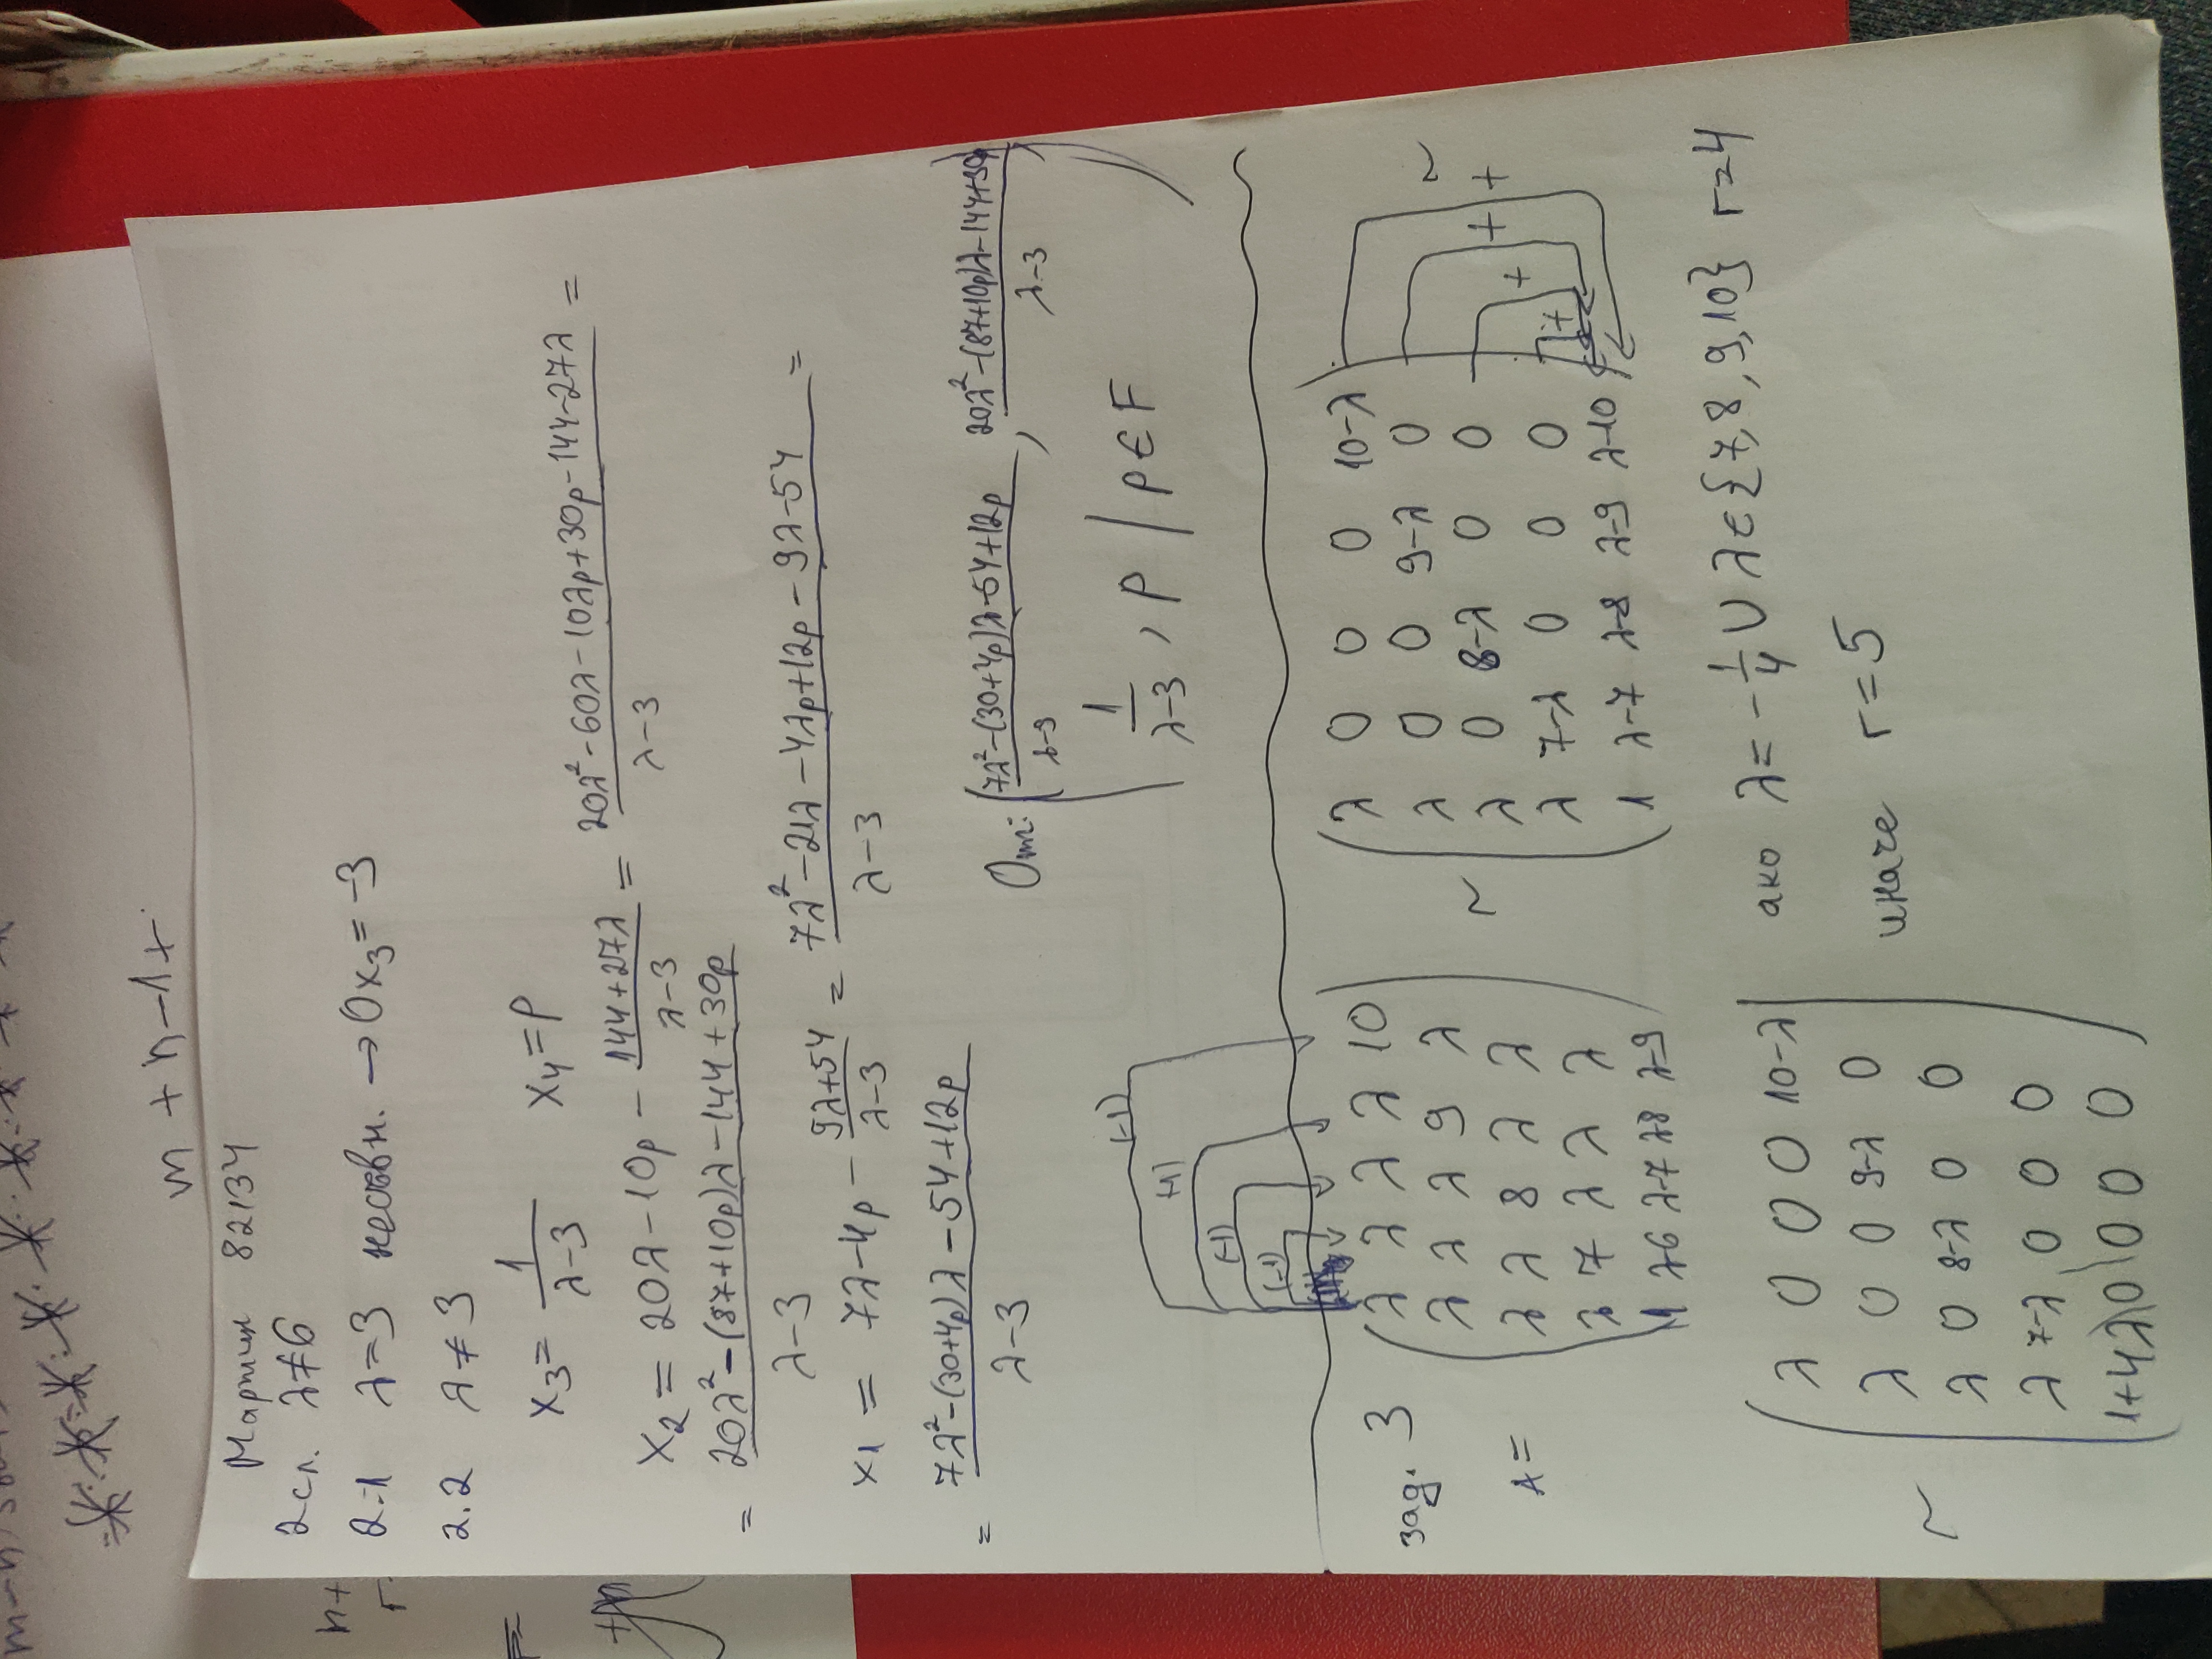 m + n - 1 +
n+
Мартин 82134
2сл. λ≠6
2.1 λ=3 несъвм. → 0x₃ = -3
2.2 λ ≠ 3
x₃ = 1/(λ-3) x₄ = p
x₂ = 20λ - 10p - (144+27λ)/(λ-3) = (20λ² - 60λ - 10λp + 30p - 144 - 27λ)/(λ-3) =
= (20λ² - (87+10p)λ - 144 + 30p)/(λ-3)
x₁ = 7λ - 4p - (9λ+54)/(λ-3) = (7λ² - 21λ - 4λp + 12p - 9λ - 54)/(λ-3) =
= (7λ² - (30+4p)λ - 54 + 12p)/(λ-3)
Отг: ((7λ² - (30+4p)λ - 54 + 12p)/(λ-3), (20λ² - (87+10p)λ - 144 + 30p)/(λ-3),
1/(λ-3), p | p ∈ F)
(-1)
(-1)
(-1)
(-1)
зад. 3
A =
λ λ λ λ 10
λ λ λ 9 λ
λ λ 8 λ λ
λ 7 λ λ λ
1 λ-6 λ-7 λ-8 λ-9
~
λ 0 0 0 10-λ
λ 0 0 9-λ 0
λ 0 8-λ 0 0
λ 7-λ 0 0 0
1 λ-7 λ-8 λ-9 λ-10
+ + + + ~
~
λ 0 0 0 10-λ
λ 0 0 9-λ 0
λ 0 8-λ 0 0
λ 7-λ 0 0 0
1+4λ 0 0 0 0
ако λ = -1/4 ∪ λ ∈ {7, 8, 9, 10} r = 4
иначе r = 5